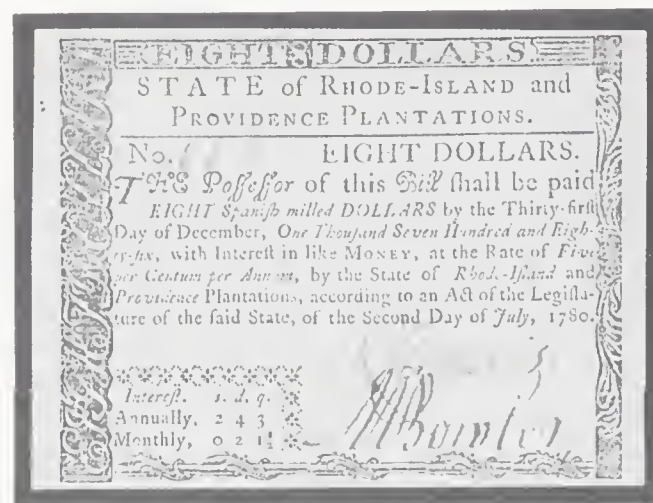 EIGHT DOLLARS
STATE of RHODE-ISLAND and
PROVIDENCE PLANTATIONS.
No. EIGHT DOLLARS.
THE Poſſeſſor of this Bill ſhall be paid
EIGHT Spaniſh milled DOLLARS by the Thirty-firſt
Day of December, One Thouſand Seven Hundred and Eigh-
ty-ſix, with Intereſt in like MONEY, at the Rate of Five
per Centum per Annum, by the State of Rhode-Iſland and
Providence Plantations, according to an Act of the Legiſla-
ture of the ſaid State, of the Second Day of July, 1780.
Intereſt. s. d. q.
Annually, 2 4 3
Monthly, 0 2 1½